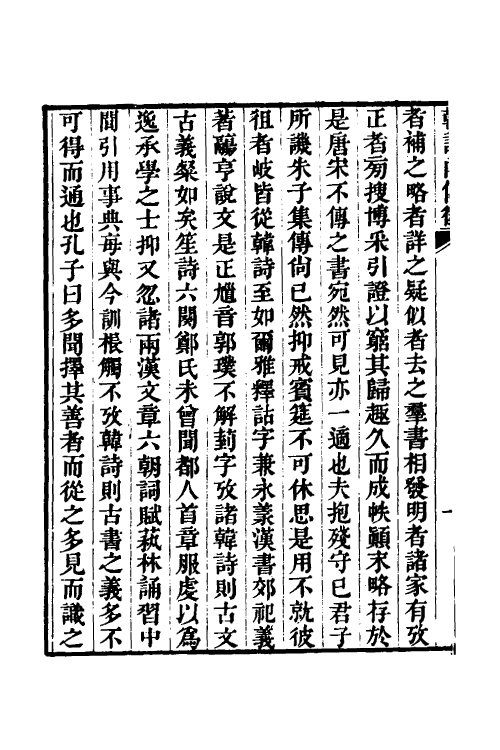 者補之略者詳之疑似者去之羣書相發明者諸家有攷
正者𣃟搜博采引證以窮其歸趣久而成帙顚末略存於
是唐宋不傳之書宛然可見亦一適也夫抱殘守已君子
所譏朱子集傳尙已然抑戒賓筵不可休思是用不就彼
徂者岐皆從韓詩至如爾雅釋詁字兼永羕漢書郊祀義
著鬺亨說文是正尷音郭璞不解葑字攷諸韓詩則古文
古義粲如矣笙詩六闕鄭氏未曾聞都人首章服虔以爲
逸承學之士抑又忽諸兩漢文章六朝詞賦菻林誦習中
間引用事典每與今訓棖觸不攷韓詩則古書之義多不
可得而通也孔子曰多聞擇其善者而從之多見而識之